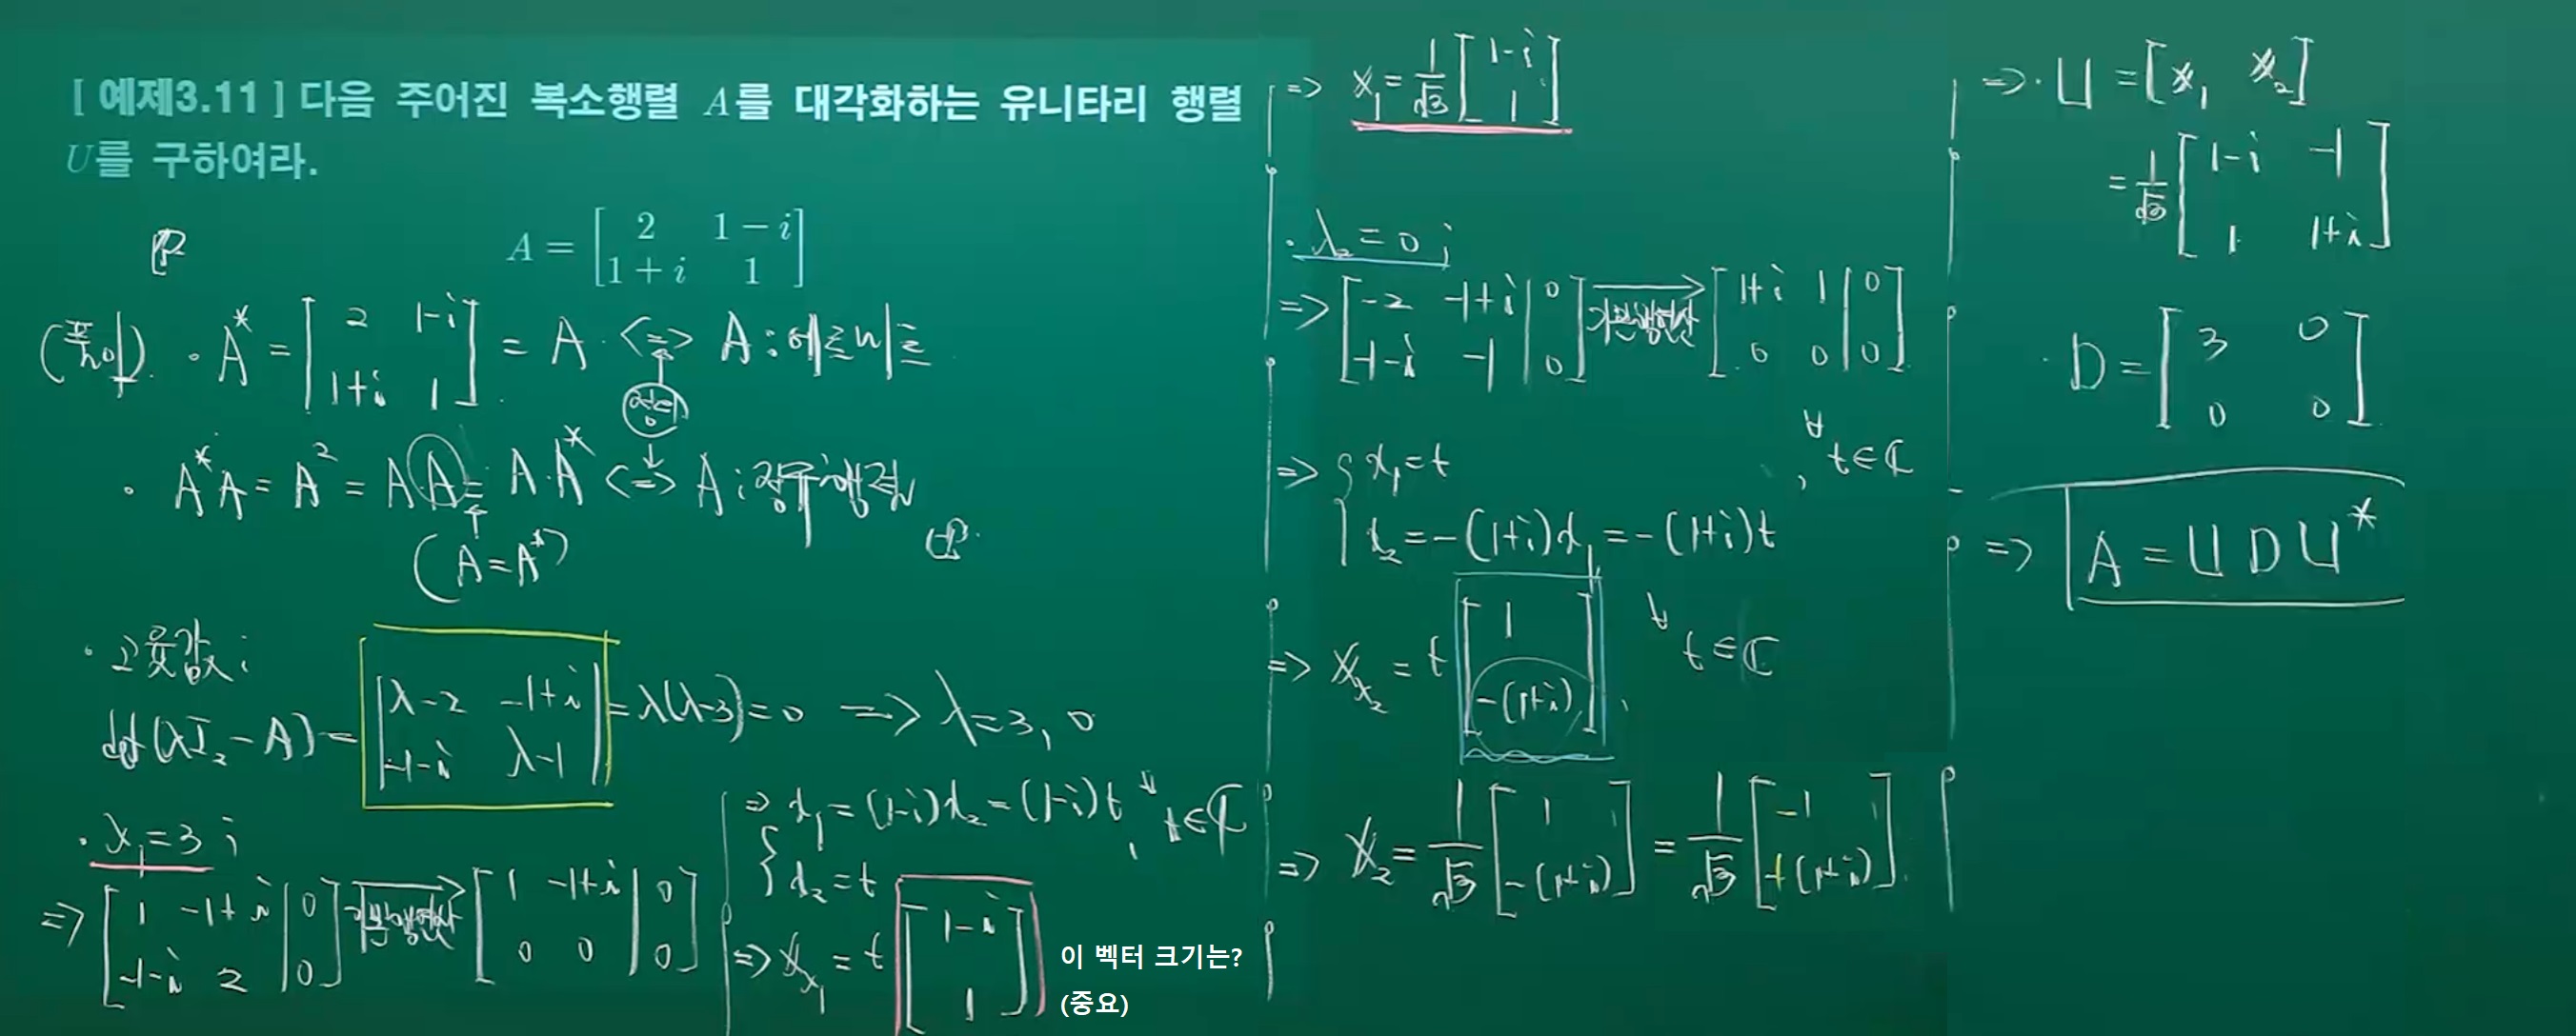 [ 예제3.11 ] 다음 주어진 복소행렬 A를 대각화하는 유니타리 행렬
U를 구하여라.
A = [2 1−i; 1+i 1]
(풀이) · A* = [2 1-i; 1+i 1] = A · <=> A : 에르미트
정의
· A*A = A² = A·A = A·A* <=> A : 정규행렬
(A=A*)
· 고윳값 ;
det(λI₂-A) = |λ-2 -1+i; -1-i λ-1| = λ(λ-3) = 0 => λ=3, 0
· λ₁=3 ;
=> [1 -1+i | 0; -1-i 2 | 0] 기본행연산 → [1 -1+i | 0; 0 0 | 0]
=> { x₁ = (1-i)x₂ = (1-i)t
x₂ = t , ∀t∈ℂ
=> 𝕩λ₁ = t [1-i; 1]
이 벡터 크기는?
(중요)
=> 𝕩₁ = 1/√3 [1-i; 1]
· λ₂=0 ;
=> [-2 -1+i | 0; -1-i -1 | 0] 기본행연산 → [1+i 1 | 0; 0 0 | 0]
=> { x₁=t , ∀t∈ℂ
x₂=-(1+i)x₁=-(1+i)t
=> 𝕩λ₂ = t [1; -(1+i)] , ∀t∈ℂ
=> 𝕩₂ = 1/√3 [1; -(1+i)] = 1/√3 [-1; +(1+i)]
=> · U = [𝕩₁ 𝕩₂]
= 1/√3 [1-i -1; 1 1+i]
· D = [3 0; 0 0]
=> A = U D U*